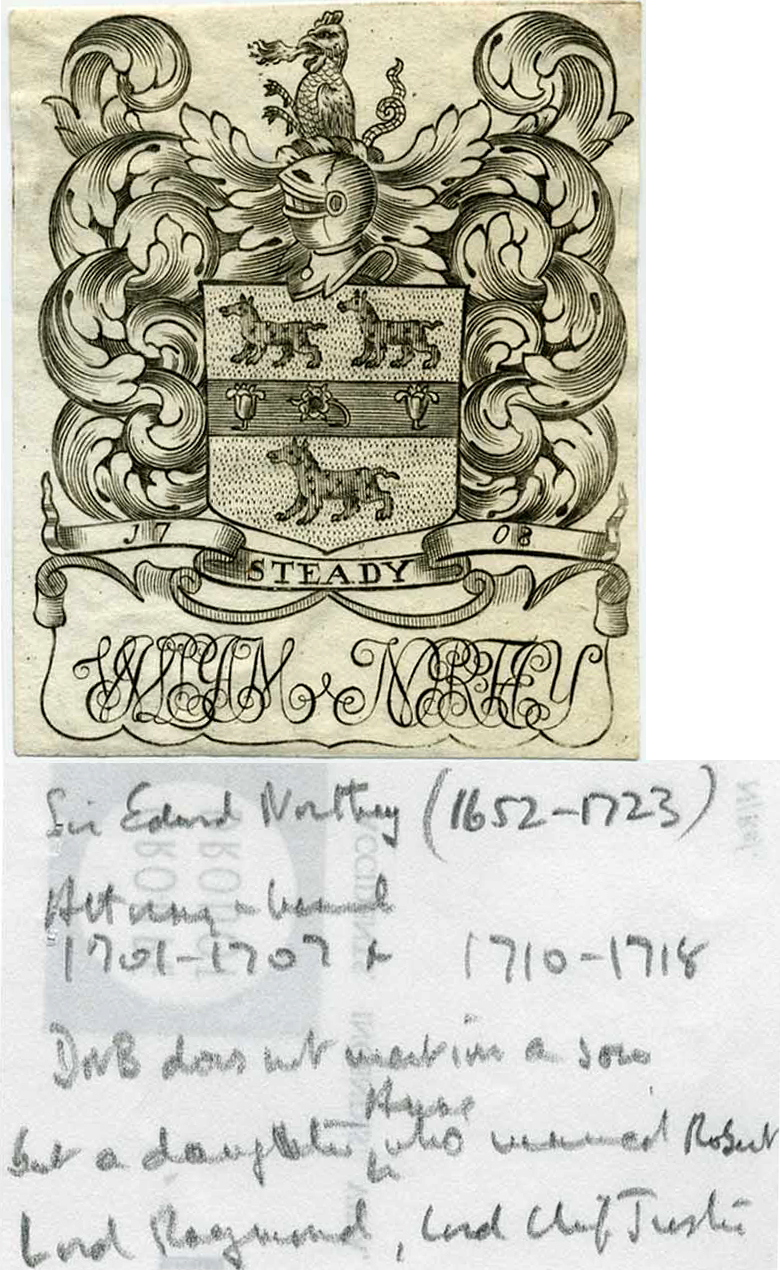 17 08
STEADY
WILLIAM NORTHEY
Sir Edward Northey (1652-1723)
Attorney-General
1701-1707 + 1710-1718
DNB does not mention a son
Anne
but a daughter, who married Robert
Lord Raymond, Lord Chief Justice